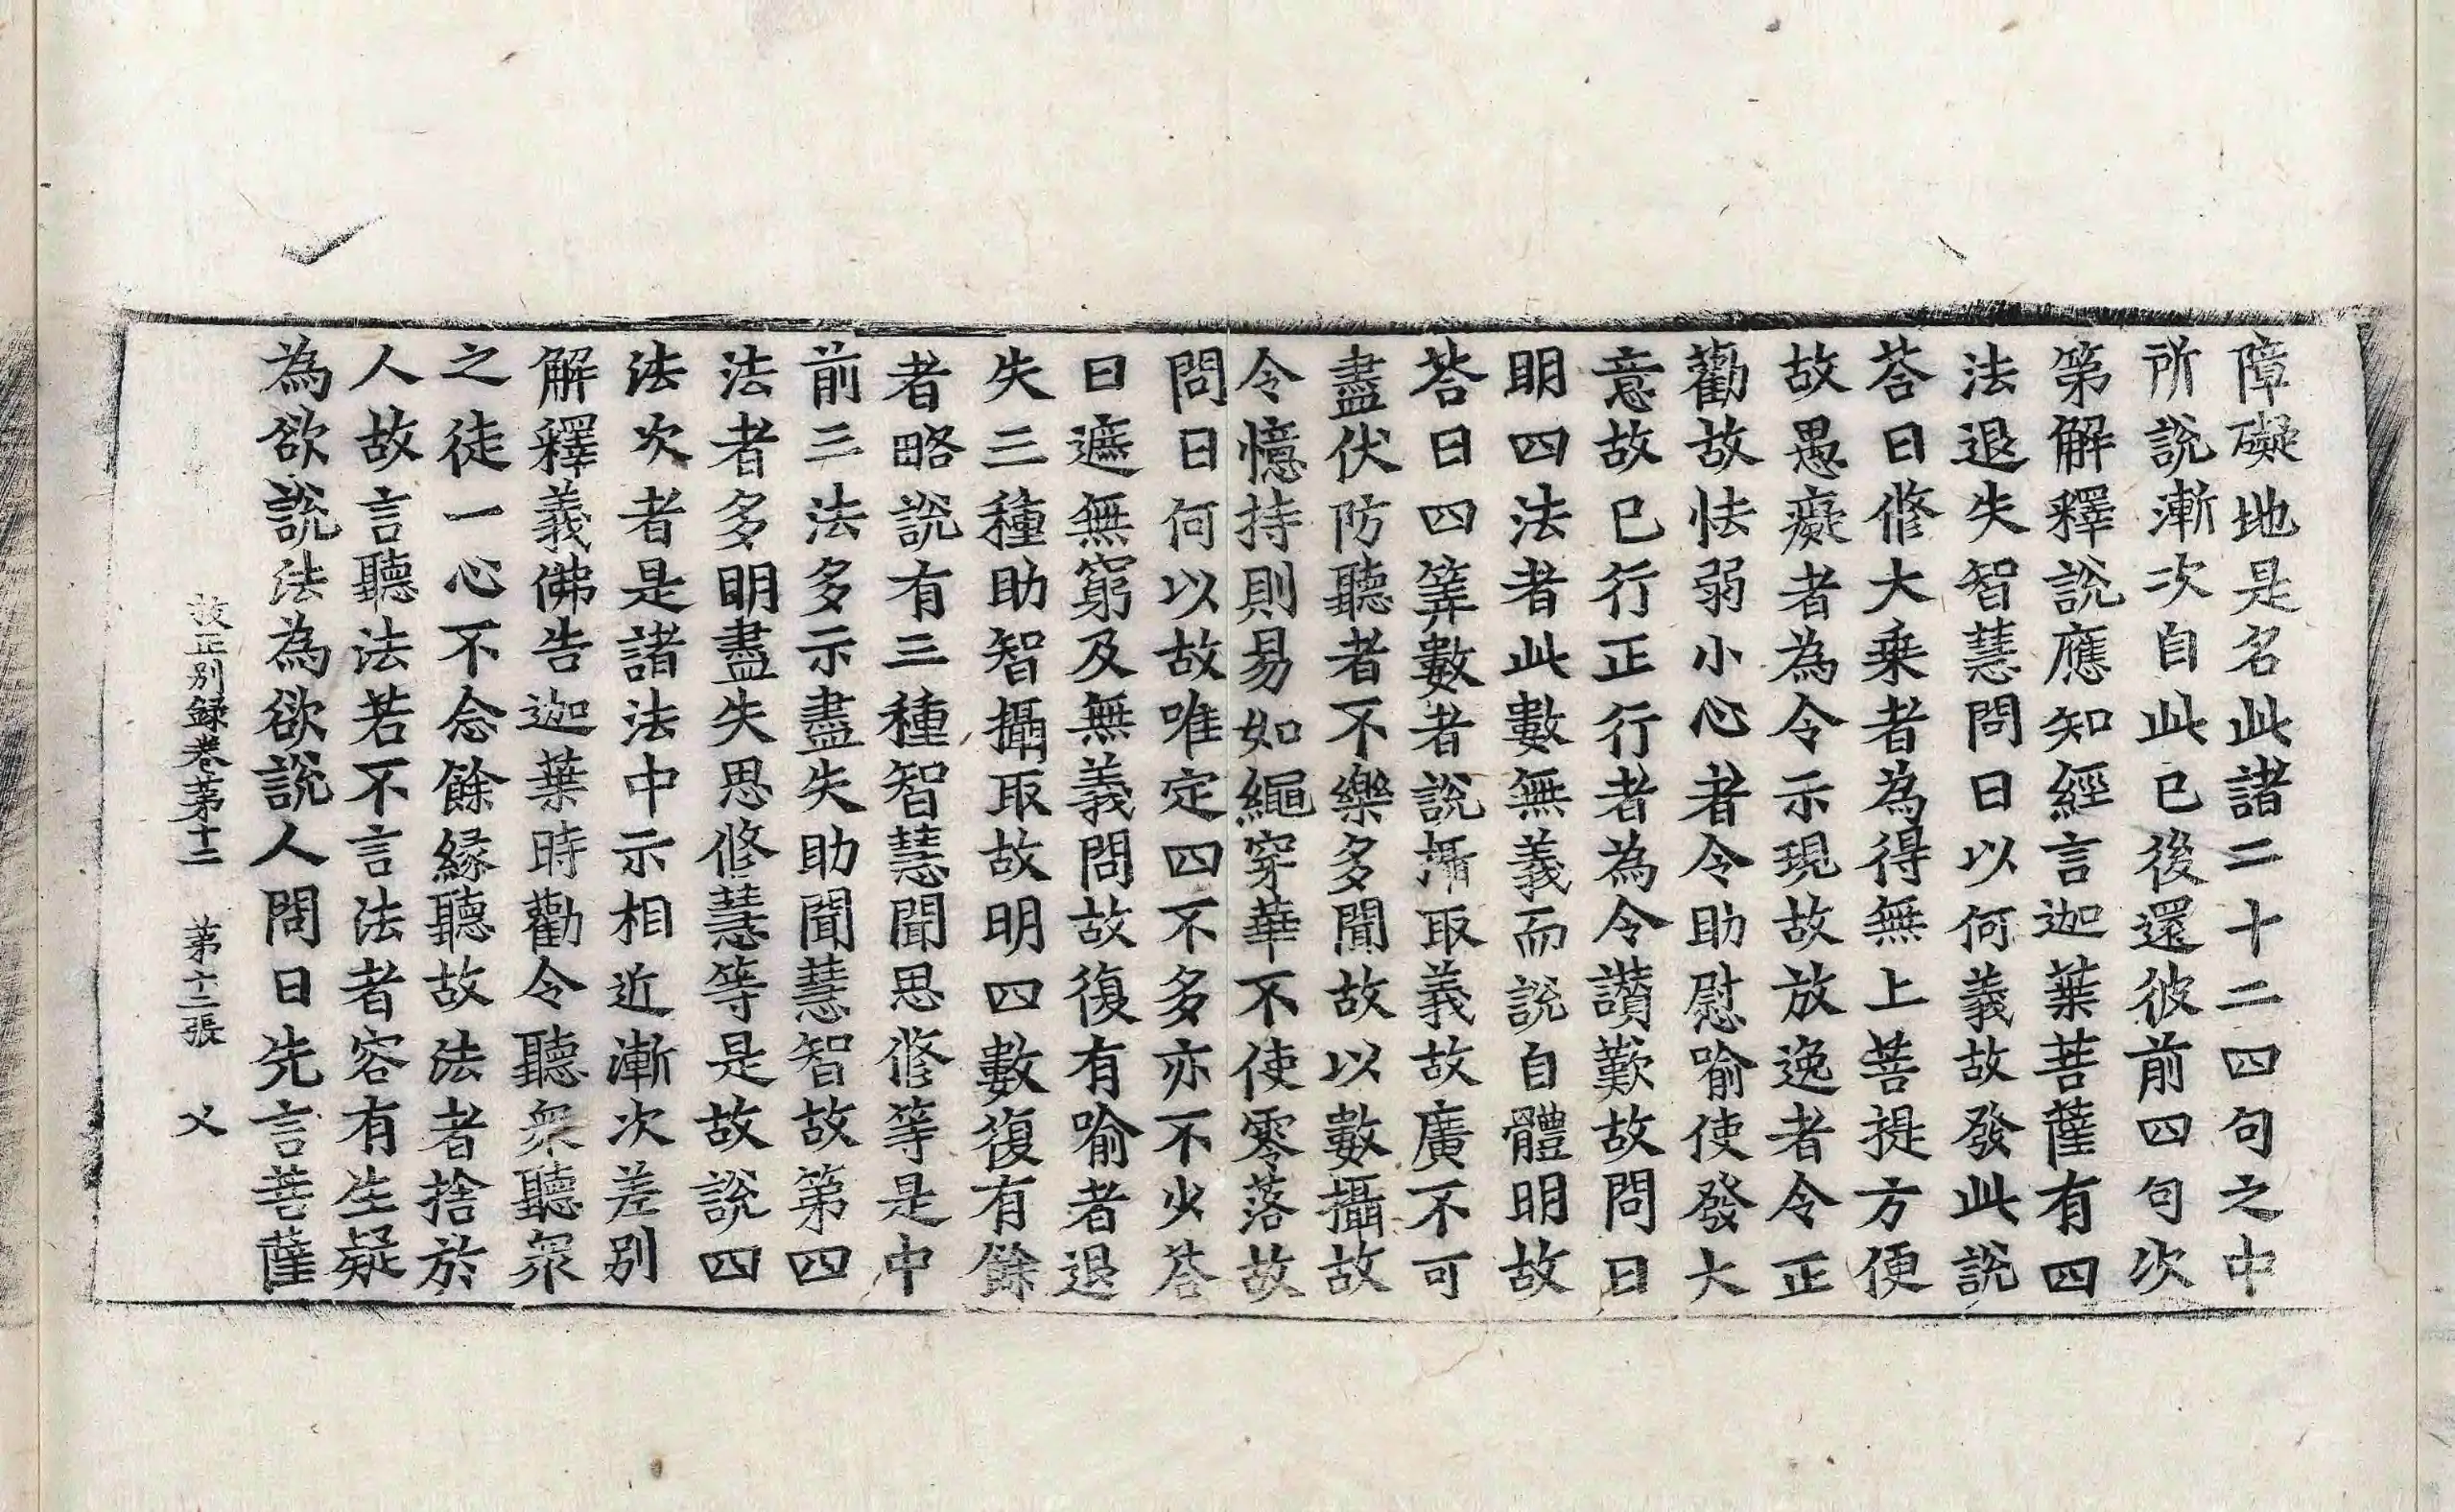 障礙地是名此諸二十二四句之中
所說漸次自此已後還彼前四句次
第解釋說應知經言迦葉菩薩有四
法退失智慧問曰以何義故發此說
荅曰修大乗者為得無上菩提方便
故愚癡者為令示現故放逸者令正
勸故怯弱小心者令助慰喻使發大
意故已行正行者為令讃歎故問曰
明四法者此數無義而說自體明故
荅曰四筭數者說攝取義故廣不可
盡伏防聽者不樂多聞故以數攝故
令憶持則易如繩穿華不使零落故
問曰何以故唯定四不多亦不少荅
曰遮無窮及無義問故復有喻者退
失三種助智攝取故明四數復有餘
者略說有三種智慧聞思修等是中
前三法多示盡失助聞慧智故第四
法者多明盡失思修慧等是故說四
法次者是諸法中示相近漸次差別
解釋義佛告迦葉時勸令聽衆聽衆
之徒一心不念餘緣聽故法者捨於
人故言聽法若不言法者容有生疑
為欲說法為欲說人問曰先言菩薩
挍正別録卷苐十二 苐十二張 父